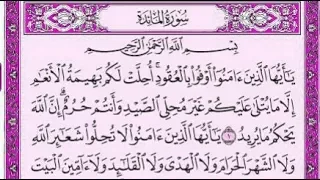 سُورَةُ المَائِدَةِ
بِسْمِ اللَّهِ الرَّحْمَٰنِ الرَّحِيمِ
يَٰٓأَيُّهَا الَّذِينَ ءَامَنُوٓا۟ أَوْفُوا۟ بِالْعُقُودِ ۚ أُحِلَّتْ لَكُم بَهِيمَةُ الْأَنْعَٰمِ
إِلَّا مَا يُتْلَىٰ عَلَيْكُمْ غَيْرَ مُحِلِّى الصَّيْدِ وَأَنتُمْ حُرُمٌ ۗ إِنَّ اللَّهَ
يَحْكُمُ مَا يُرِيدُ ١ يَٰٓأَيُّهَا الَّذِينَ ءَامَنُوا۟ لَا تُحِلُّوا۟ شَعَٰٓئِرَ اللَّهِ
وَلَا الشَّهْرَ الْحَرَامَ وَلَا الْهَدْىَ وَلَا الْقَلَٰٓئِدَ وَلَآ ءَآمِّينَ الْبَيْتَ